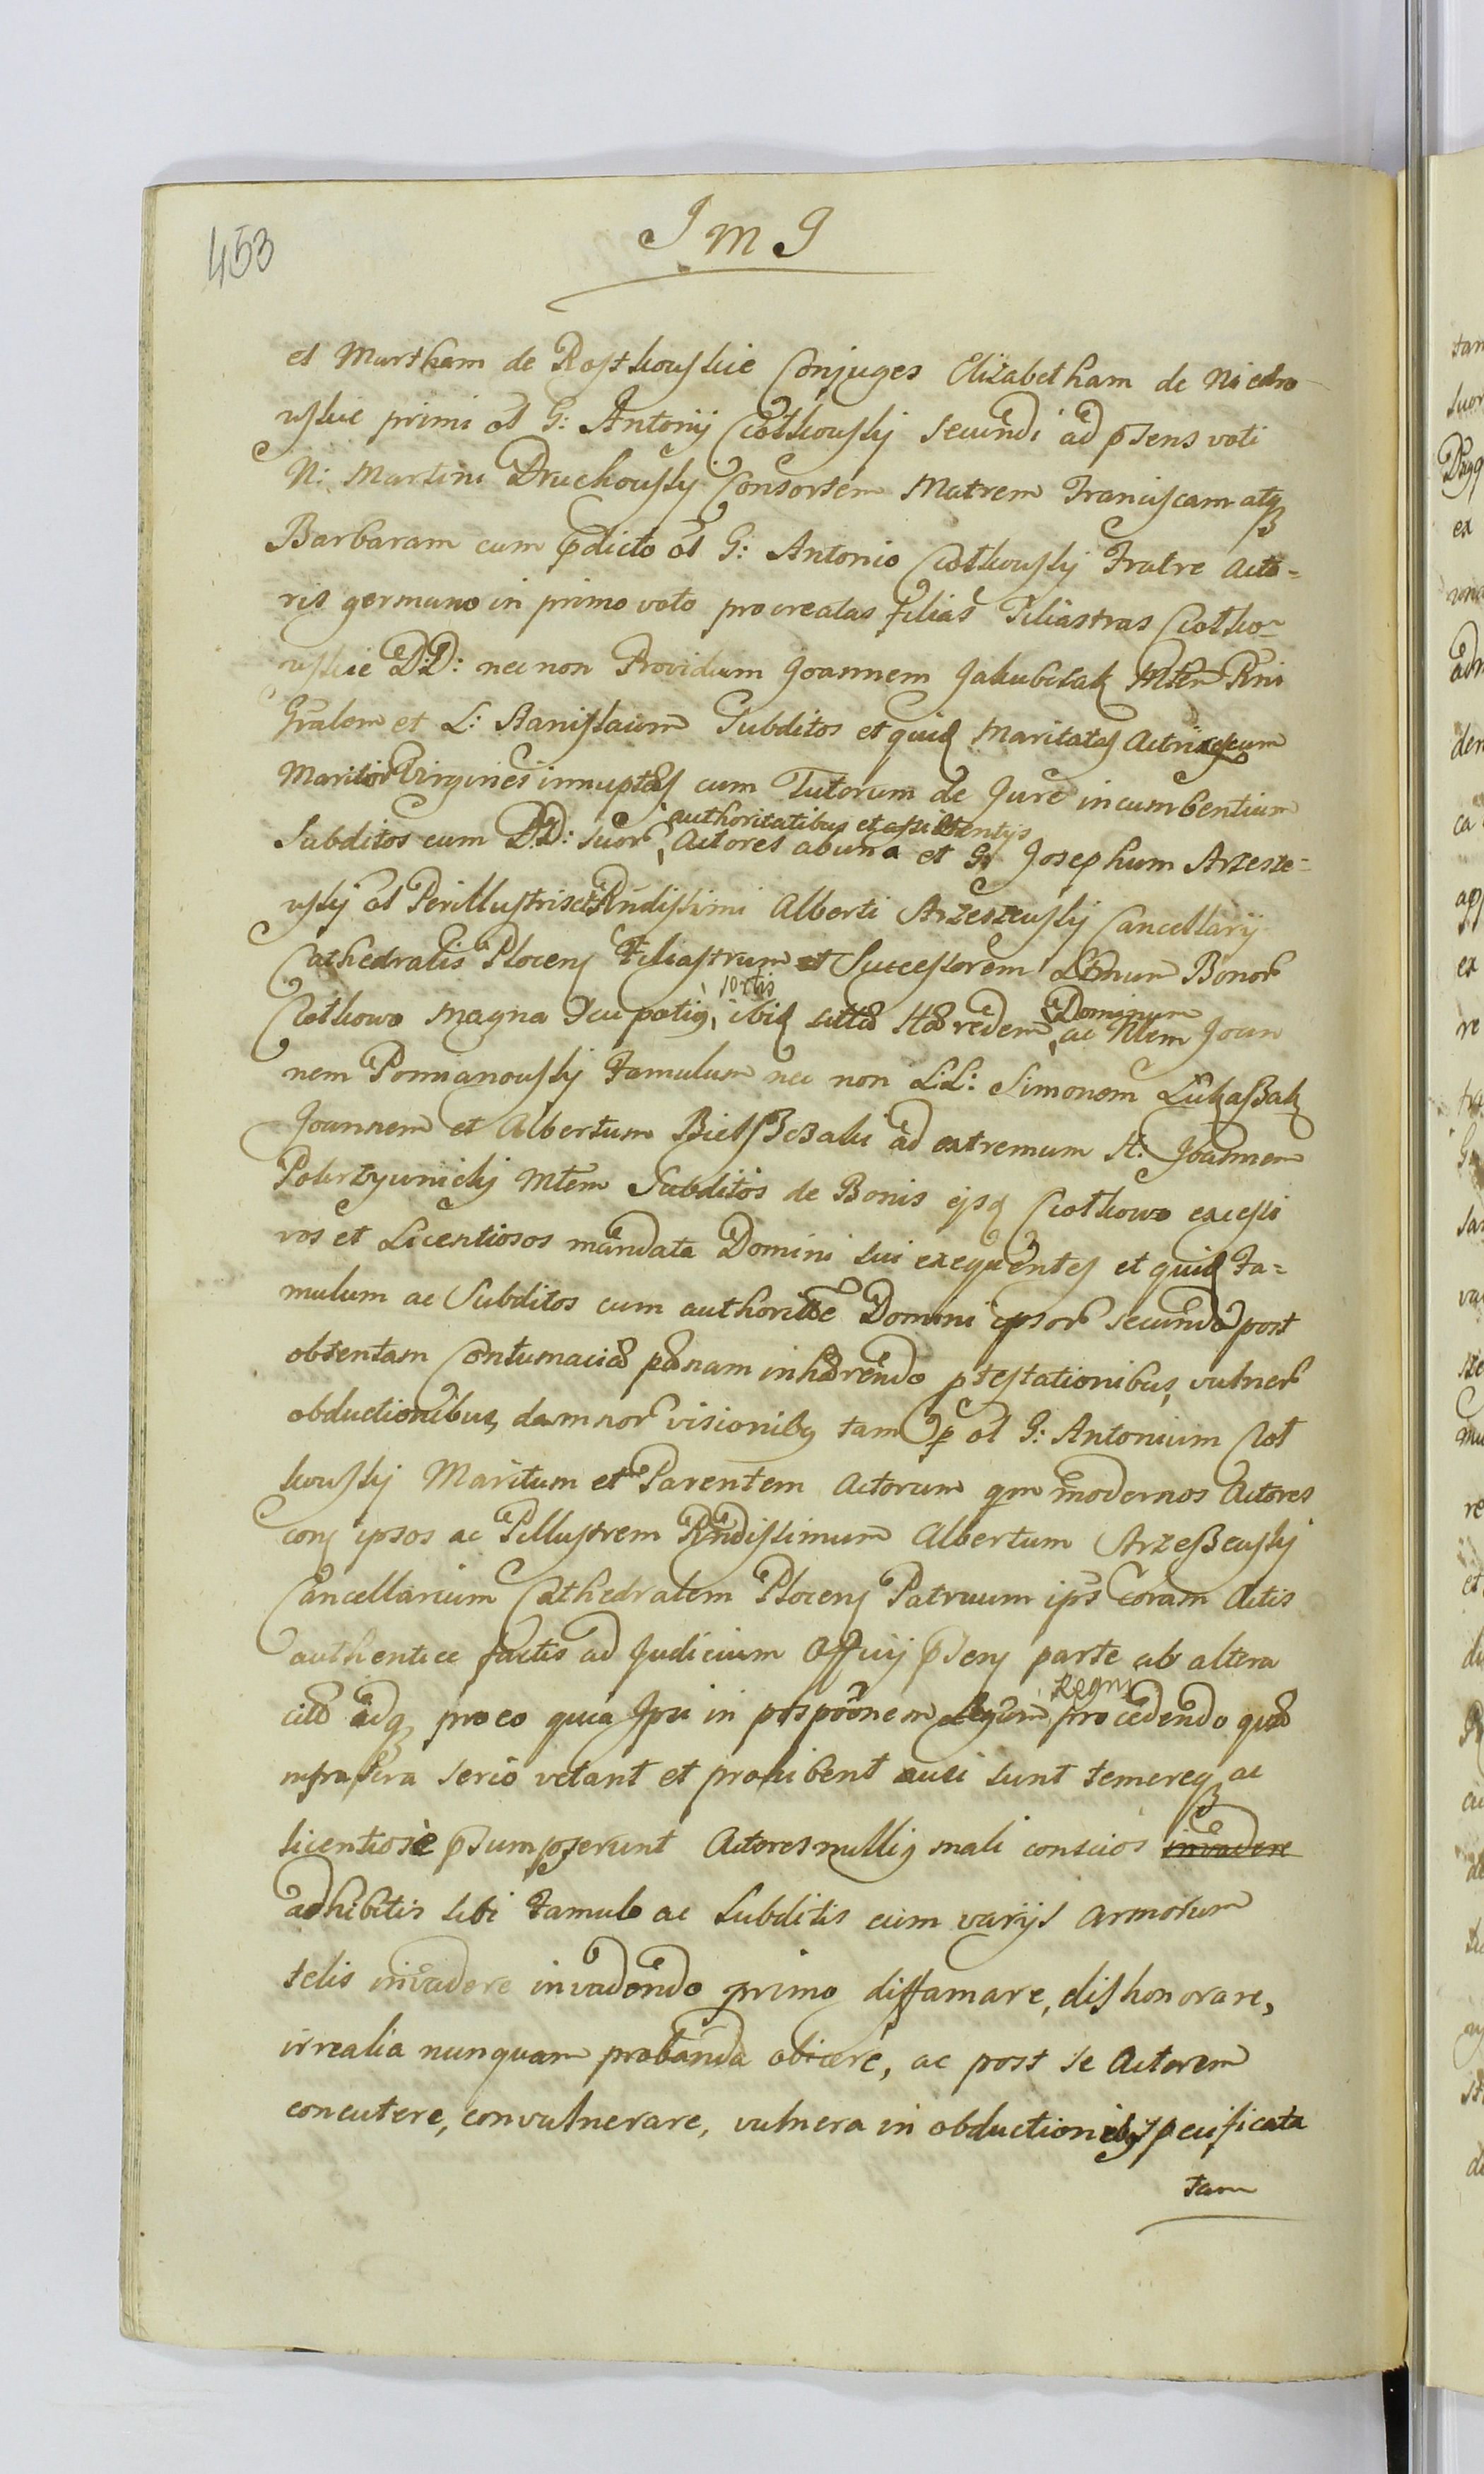 453
J M J
et Martham de Rostkowskie Conjuges Elizabetham de Niedro
wskie primi ol G: Antonij Ciotkowskij secundi ad p̄sens voti
N: Martini Druchowskij Consortem Matrem Franciscam atq
Barbaram cum p̄dicto ol G: Antonio Ciotkowskij Fratre Acto=
ris germano in primo voto procreatas filias Filiastras Ciotko=
wskie D:D: nec non Providum Joannem Jakubczak Rni
Gralem et L: Stanislaum Subditos et quid Maritatas cum
Maritor Virgines innuptas cum Tutorum de Jure incumbentium
authoritatibus et assistentijs
Subditos cum D:D: suor Actores ab una et G: Josephum Arzesze=
wskij ol Perillustris et Rndissimi Alberti Arzeszewskij Cancellarij
Cathedralis Plocens Filiastrum et Successorem Bonor
sortis Dominum
Ciotkowo magna ibid Hæredem ac Nlem Joan
nem Pomianowskij Famulum nec non L:L: Simonem Lukaszak
Joannem et Albertum ad extremum H: Joannem
Pokrzywnickij Mtem Subditos de Bonis ejsd Ciotkowo excessi
vos et Licentiosos mandata Domini sui exequentes et quid Fa=
mulum ac Subditos cum authoritte Domini ipsor secundo post
obtentam Contumaciæ pænam inhærendo p̄testationibus, vulner
obductionibus, damnor visionibq tam p ol G: Antonium Ciot
kowskij Maritum et Parentem Actorum qm modernos Actores
cons ipsos ac Pillustrem Rndissimum Albertum Arzeszewskij
Cancellarium Cathedralem Plocens Patruum ips coram Actis
authentice factis ad Judicium Officij p̄sens parte ab altera
Regni
citö idq pro eo quia Ipsi in pospoönem Legum procedendo quæ
infrascra serio vetant et prohibent ausi sunt temereq ac
licentiosè p̄sumpserunt Actores nullig mali conscios invadere
adhibitis sibi Famulo ac Subditis cum varijs armorum
telis invadere invadendo primo diffamare, dishonorare,
irrealia nunquam probanda obicere, ac post se Actorem
concutere, convulnerare, vulnera in obductionibq specificata
tam